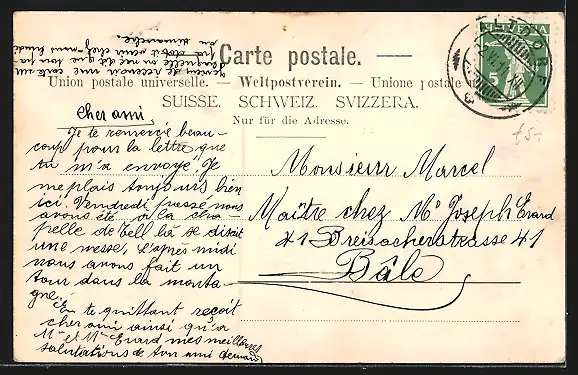 Carte postale.
Union postale universelle. — Weltpostverein. — Unione postale
SUISSE. SCHWEIZ. SVIZZERA.
Nur für die Adresse.
ALTDORF
5
Cher ami,
Je te remercie beau-
coup pour la lettre que
tu m'a envoyé. Je
me plais toujours bien
ici. Vendredi passé nous
avons été à la cha-
pelle de Tell là se disait
une messe, l'après midi
nous avons fait un
tour dans la monta-
gne.
En te quittant reçoit
cher ami ainsi qu'a
Mr et Mme Erard mes meilleures
salutations de ton ami
Monsieur Marcel
Maître chez Mr Joseph Erard
41 Breisacherstrasse 41
Bâle